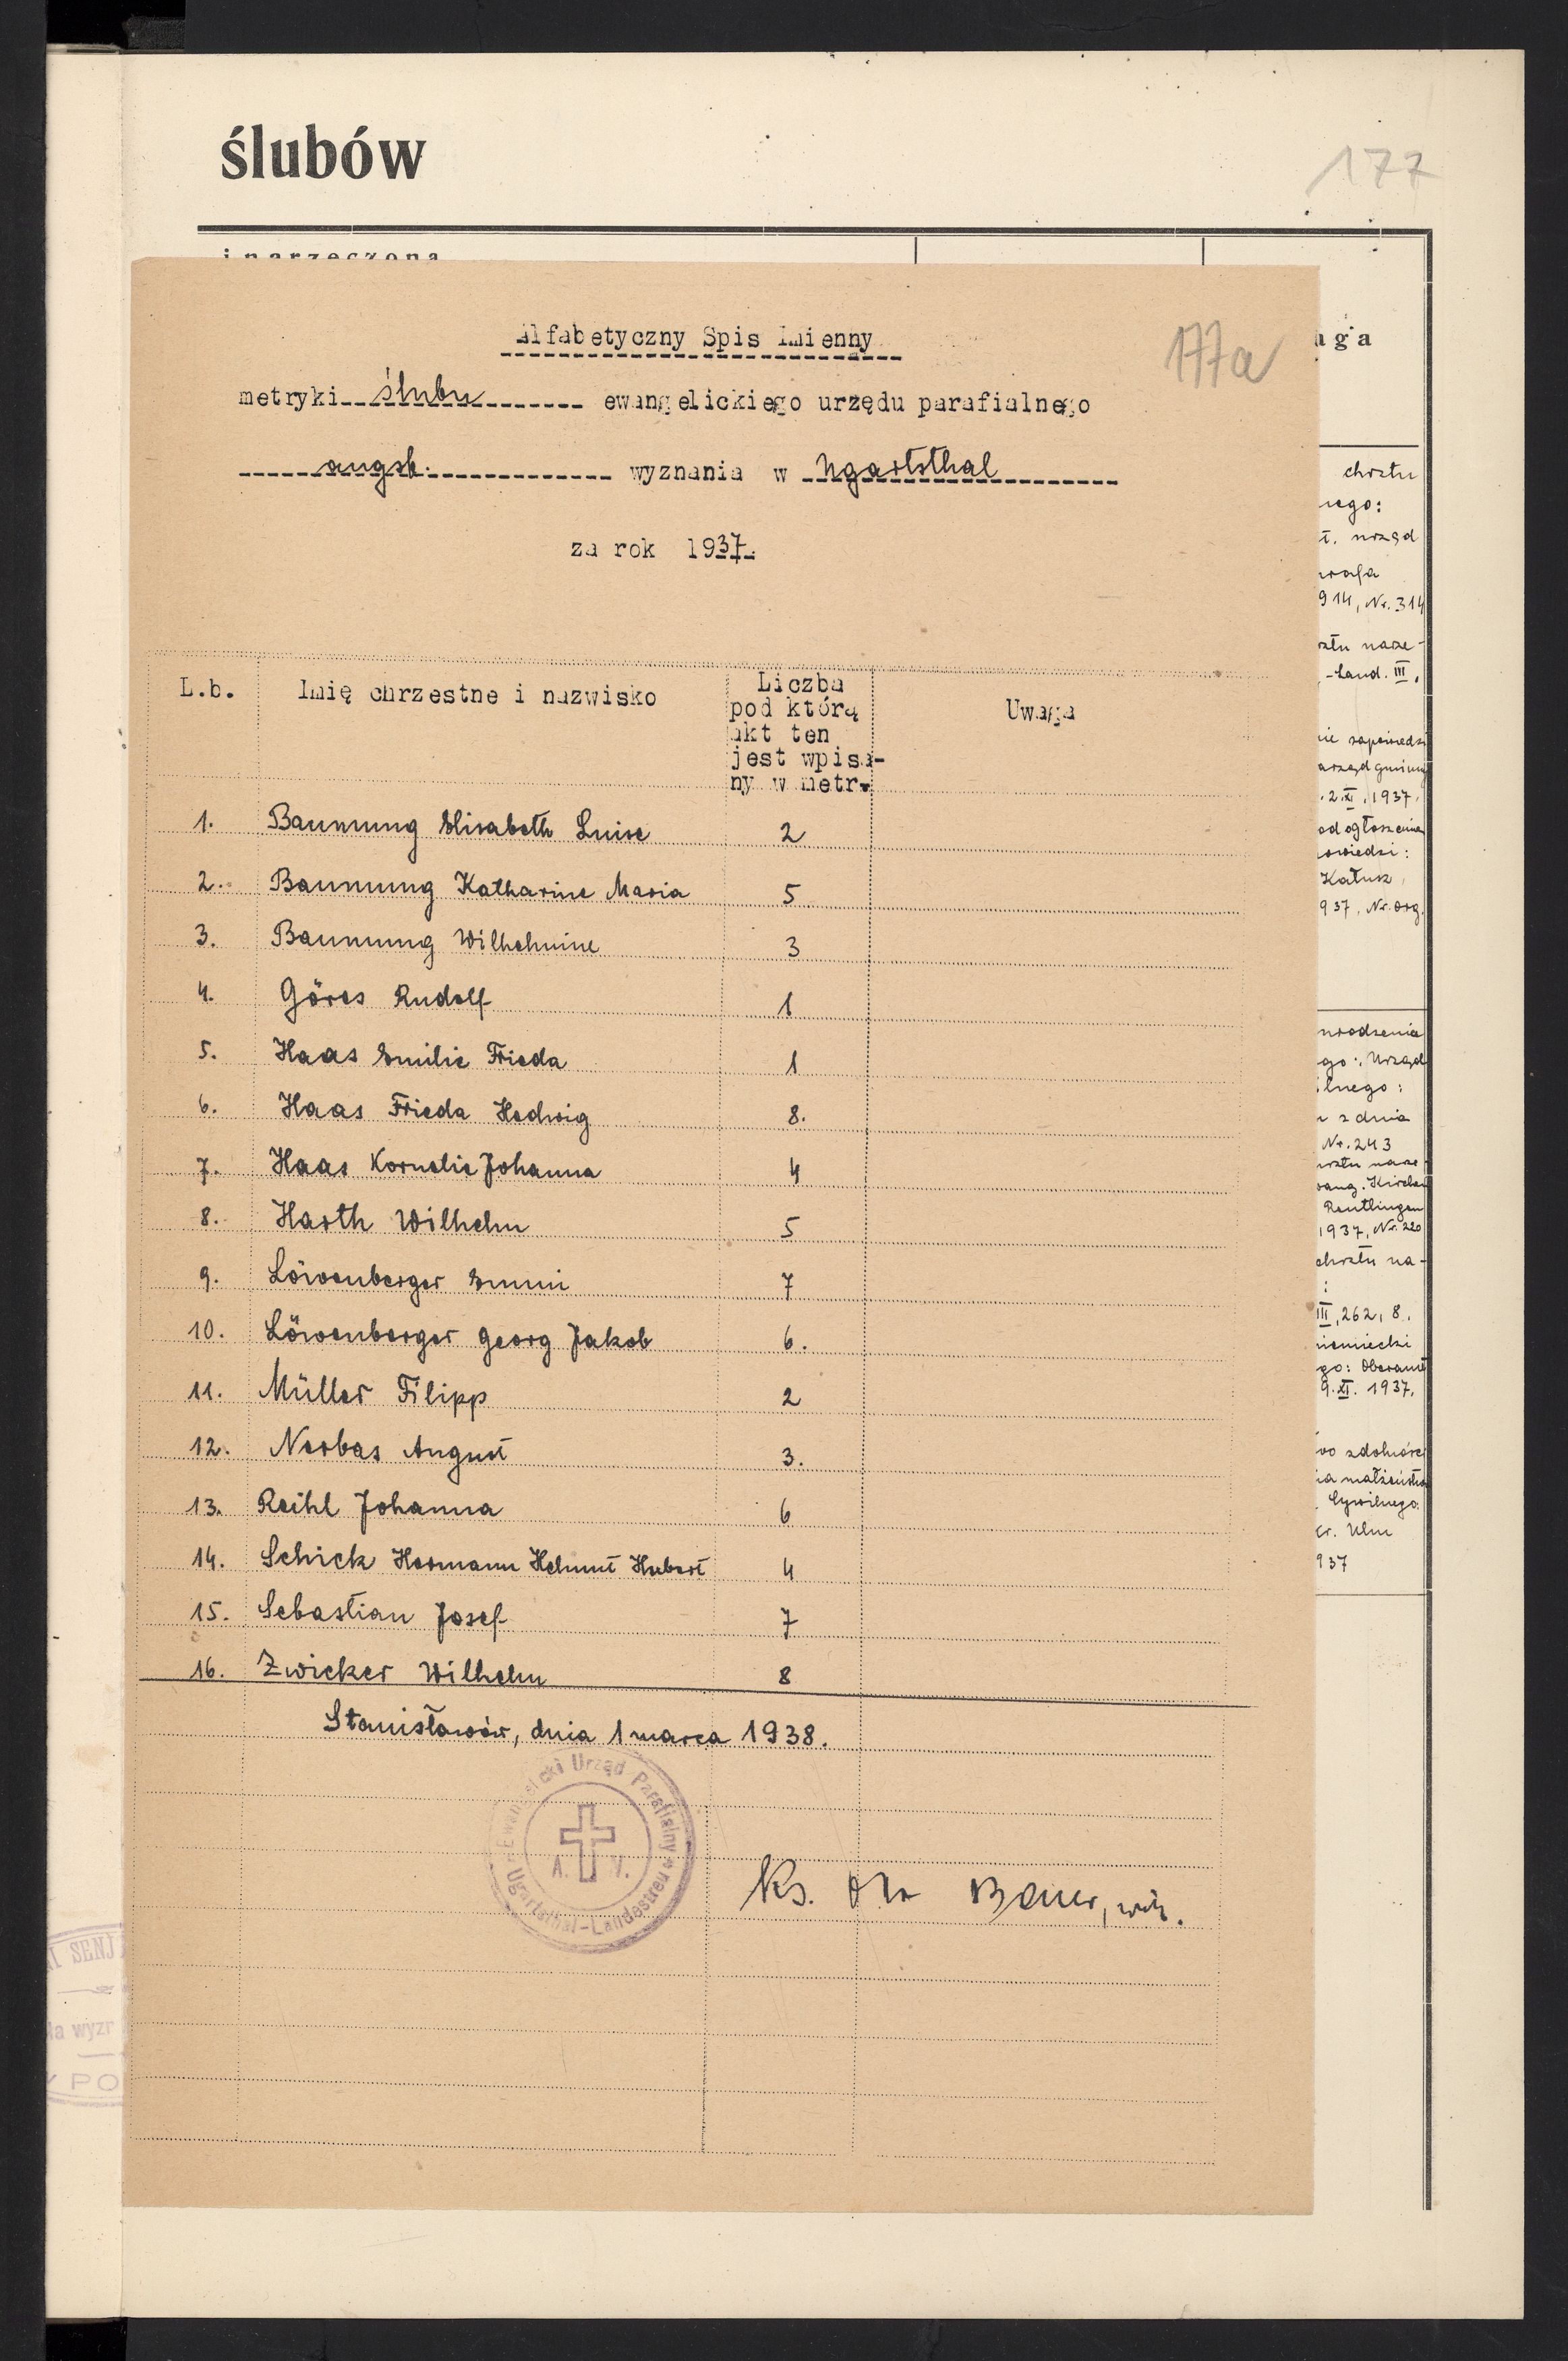 ślubów
177
i narzeczona
Alfabetyczny Spis Imienny
177a
metryki ślubu ewangelickiego urzędu parafialnego
augsb. wyznania w Ugartsthal
za rok 1937.
L.b.
Imię chrzestne i nazwisko
Liczba
pod którą
akt ten
jest wpisa-
ny w metr.
Uwaga
1. Baumung Elisabeth Luise 2
2. Baumung Katharine Maria 5
3. Baumung Wilhelmine 3
4. Göres Rudolf 1
5. Haas Emilie Frieda 1
6. Haas Frieda Hedwig 8.
7. Haas Kornelie Johanna 4
8. Harth Wilhelm 5
9. Löwenberger Emmi 7
10. Löwenberger Georg Jakob 6.
11. Müller Filipp 2
12. Nerbas August 3.
13. Reihl Johanna 6
14. Schick Hermann Helmut Hubert 4
15. Sebastian Josef 7
16. Zwicker Wilhelm 8
Stanisławów, dnia 1 marca 1938.
Ewangelicki Urząd Parafialny
A. V.
Ugartsthal-Landestreu
Ks. Bauer, wik.
aga
chrztu
nego:
urząd
914, Nr. 314
-Land. III.
zapowiedzi
2.XI.1937.
od ogłoszenia
owiedzi:
Kałusz,
937, Nr. org.
urodzenia
go: Urząd
lnego:
z dnia
Nr. 243
ang. Kirchen
Reutlingen
1937, Nr. 220
chrztu na-
:
III, 262, 8.
niemiecki
go: Oberamt
9.XI. 1937.
wo zdolności
ia małżeństwa
Cywilnego
Ulm
937
I SENJ
la wyzr
PO